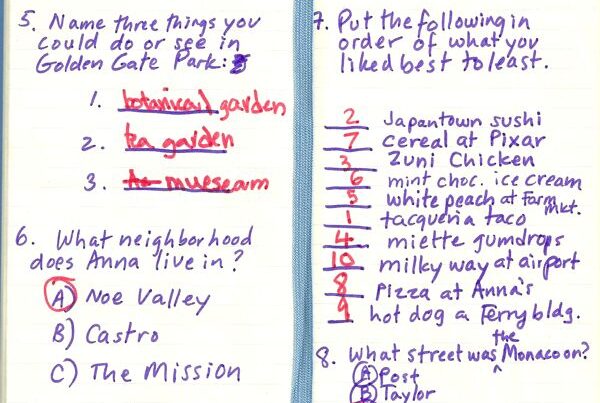 5. Name three things you
could do or see in
Golden Gate Park:
1. botanical garden
2. tea garden
3. muesearm
6. What neighborhood
does Anna live in?
A) Noe Valley
B) Castro
C) The Mission
7. Put the following in
order of what you
liked best to least.
2 Japantown sushi
7 cereal at Pixar
3 Zuni Chicken
6 mint choc. ice cream
5 white peach at farm mkt.
1 tacqueria taco
4 miette gumdrops
10 milky way at airport
8 Pizza at Anna's
9 hot dog a Ferry bldg.
8. What street was the Monaco on?
A) Post
B) Taylor